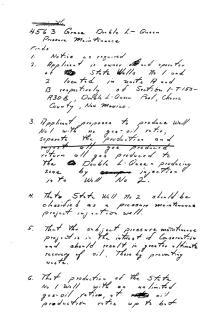 4563 Grace Double L-Queen
Pressure Maintenance
Finds
1. Notice as required
2. Applicant is owner and operator
of State Wells No 1 and
2 located in units A and
B respectively of Section 1-T15S-
R30E, Double L-Queen Pool, Chaves
County, New Mexico.
3. Applicant proposes to produce Well
No 1 with no gas-oil ratio,
separate the production and
inject all gas produced
return all gas produced to
the Double L-Queen producing
zone by injection
into Well No 2.
4. That State Well No 2 should be
classified as a pressure maintenance
project injection well.
5. That the subject pressure maintenance
project is in the interest of conservation
and should result in greater ultimate
recovery of oil. Thereby preventing
waste.
6. That production of the State
No 1 Well with an unlimited
gas-oil ratio, at oil
production rates up to but